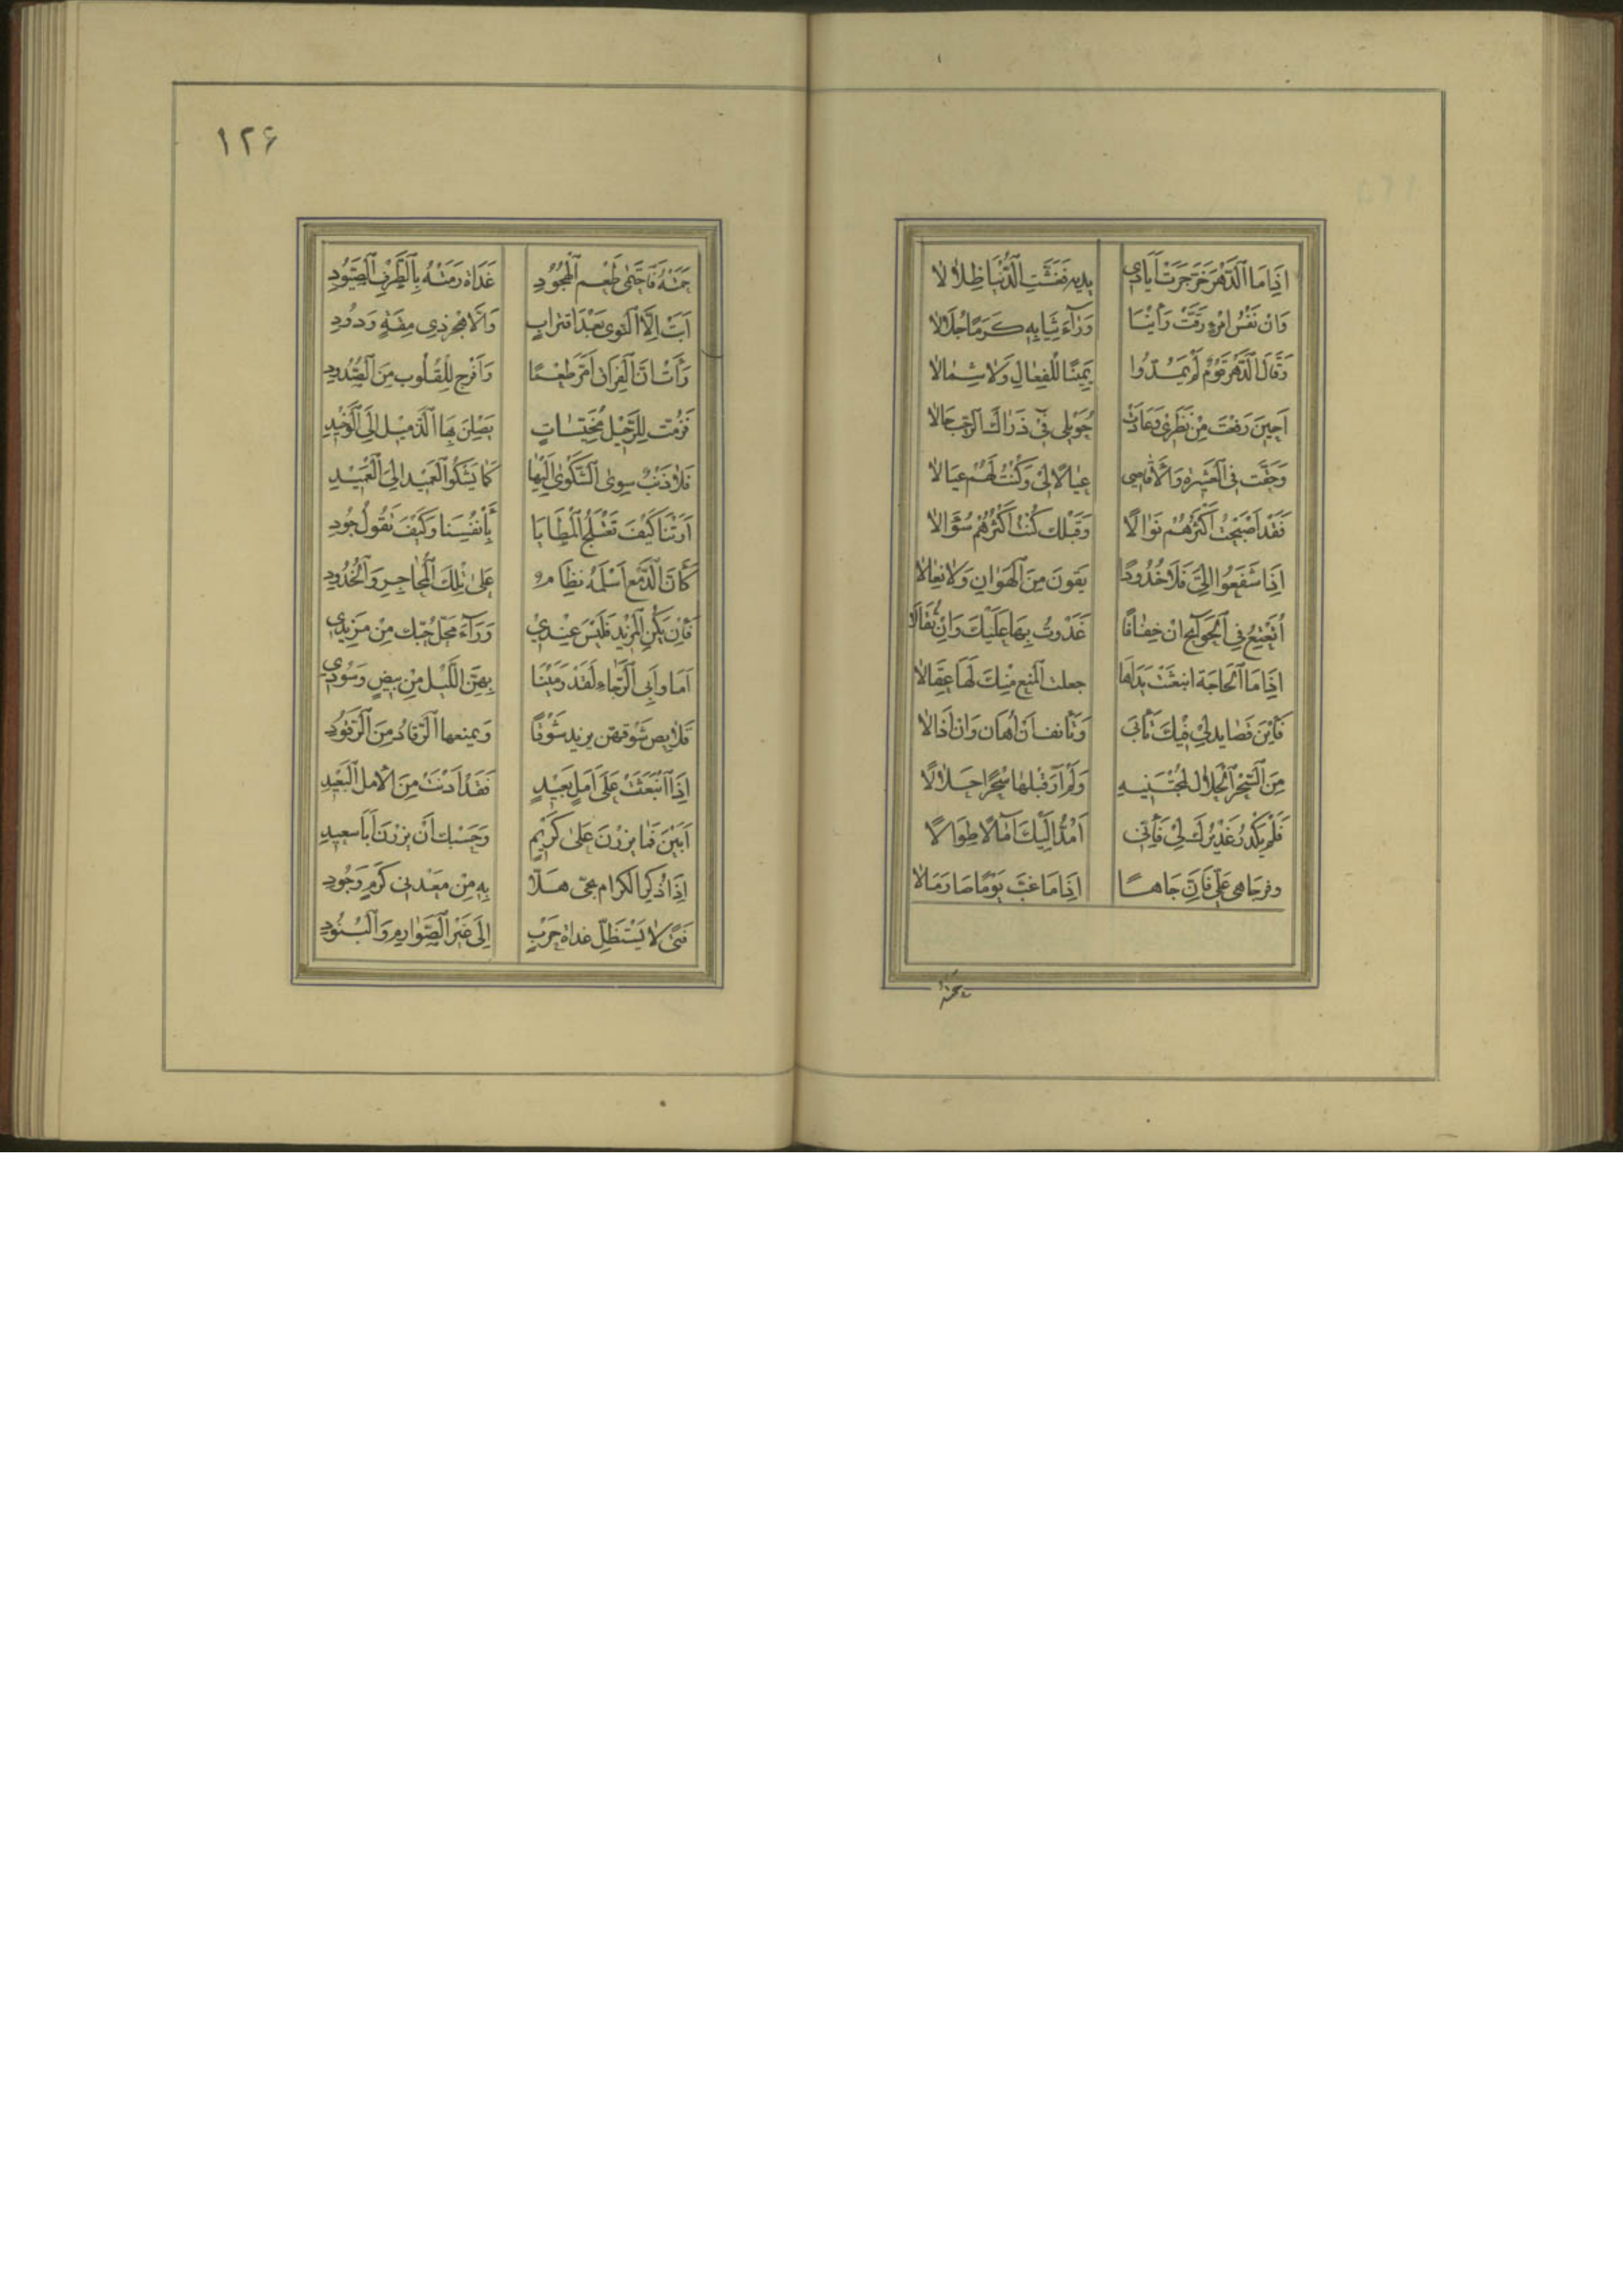 اِذَا مَا الدَّهْرُ جَرَتْ اَيَادِي يديه فَغَشَّتِ الدُّنْيَا ظِلَالَا
وَاِنْ نَفْسُ امْرِءٍ دَقَّتْ رَأَيْنَا وَرَآءَ ثِيَابِهِ كَرَمًا جُلَالَا
وَقَالَ الدَّهْرُ قَوْمٌ لَمْ يَمُدُّوا يَمِينًا لِلْفِعَالِ وَلَا شِمَالَا
اَحِينَ رَفَعْتَ مِنْ نَظَرِي وَعَادَتْ حُوَيْلِي فِي ذَرَاكَ الرَّحْبِ حَالَا
وَحَفَّتْ فِي الْعَشِيرَة وَالْاَقَاصِي عِيَالًا لِي وَكُنْتُ لَهُمْ عِيَالَا
فَقَدْ اَصْبَحْتُ اَكْثَرَهُمْ نَوَالًا وَقَبْلَكَ كُنْتُ اَكْثَرَهُمْ سُؤَالَا
اِذَا شَفَعُوا اِلَيَّ فَلَا خُدُودًا يَقُونَ مِنَ الْهَوَانِ وَلَا نِعَالَا
اُتَعْتِعُ فِي الْحَوَآئِجِ اِنْ خِفَافًا غَدَوْتُ بِهَا عَلَيْكَ وَاِنْ ثِقَالَا
اِذَا مَا الْحَاجَة انبَعَثَتْ يَدَاهَا جعلت المنع مِنْكَ لَهَا عِقَالَا
فَأَيْنَ قَصَايدلِي فِيكَ تَأْبَى وَتَأْنف اَنْ اُهَان وَاَنْ اُذَالَا
مِنَ السِّحْرِ الْحَلَالِ لِمُجْتَنِيهِ وَلَمْ اَرَ قَبْلَهَا سِحْرًا حَلَالًا
فَلَمْ يَكْدُرْ غَدِيرُكَ لِي فَاِنِّي اَمُدُّ اِلَيْكَ آمَالًا طِوَالًا
وفر جاهى عَلَيَّ فَاِنَّ جَاهًا اِذَا مَا غَبَّ يَوْمًا صَارَ مَالَا
حمته
١٢۶
حَمَتْهُ فَاحْتَمَى طَعْم الْهُجُودِ غَدَاة رَمَتْهُ بِالطَّرْفِ الصَّيُودِ
اَبَتْ اِلَّا النَّوى بَعْدَ اقترابٍ وَاِلَّا هَجْرَ ذي مِقَةٍ وَدُودِ
وَأَشْهَدُ اَنَّ الْفِرَاقَ اَمَرُّ طَعْمًا وَاَقْرَحُ لِلْقُلُوبِ مِنَ الصُّدُودِ
فَزُمَّتْ لِلرَّحِيلِ مُخَيَّسَاتٍ يَصِلْنَ بِهَا الذَّمِيلَ اِلَى الْوَخِيدِ
فَلَا ذَنْبٌ سِوَى الشَّكْوَى اِلَيْهَا كَمَا يَشْكُو الْعَمِيد اِلَى الْعَمِيدِ
اَرَتْنَا كَيْفَ تَعْتَلِجُ الْمَطَايَا بِأَنْفُسِنَا وَكَيْفَ نَقُولُ جُودِي
كَأَنَّ الدَّمْعَ اَسْلَمَهُ نِظَامٌ عَلَى تِلْكَ الْمَحَاجِرِ وَالْخُدُودِ
فَاِنْ يَكُنِ الْمَزِيد فَلَيْسَ عِنْدِي وَرَآءَ مَحَلِّ حُبِّكِ مِنْ مَزِيدِ
اَمَا وَاَبِي الرَّجَاءِ لَقَدْ رَمَيْنَا بِهِنَّ اللَّيْلَ مِنْ بِيضٍ وَسُودِ
قَلَايص شَوْقهن يزيد شَوْقًا وَيمنعها الرُّقَاد مِنَ الرُّقُودِ
اِذَا انْبَعَثَتْ عَلَى اَمَلٍ بَعِيدٍ فَقَدْ اَدْنَتْ مِنَ الْاَمَلِ الْبَعِيدِ
اَبَيْنَ فَمَا يزُرْنَ عَلَى كَرِيمٍ وَحَسْبكَ اَنْ يَزُرْنَ اَبَا سَعِيدِ
اِذَا ذُكِرَ الكرام فحيّ هَلَّا بِهِ مِنْ مَعْدني كَرَمٍ وَجُودِ
فَتًى لَا يَسْتَظِلُّ غداة حَرْبٍ اِلَى غَيْرِ الصَّوَارِمِ وَالْبُنُودِ